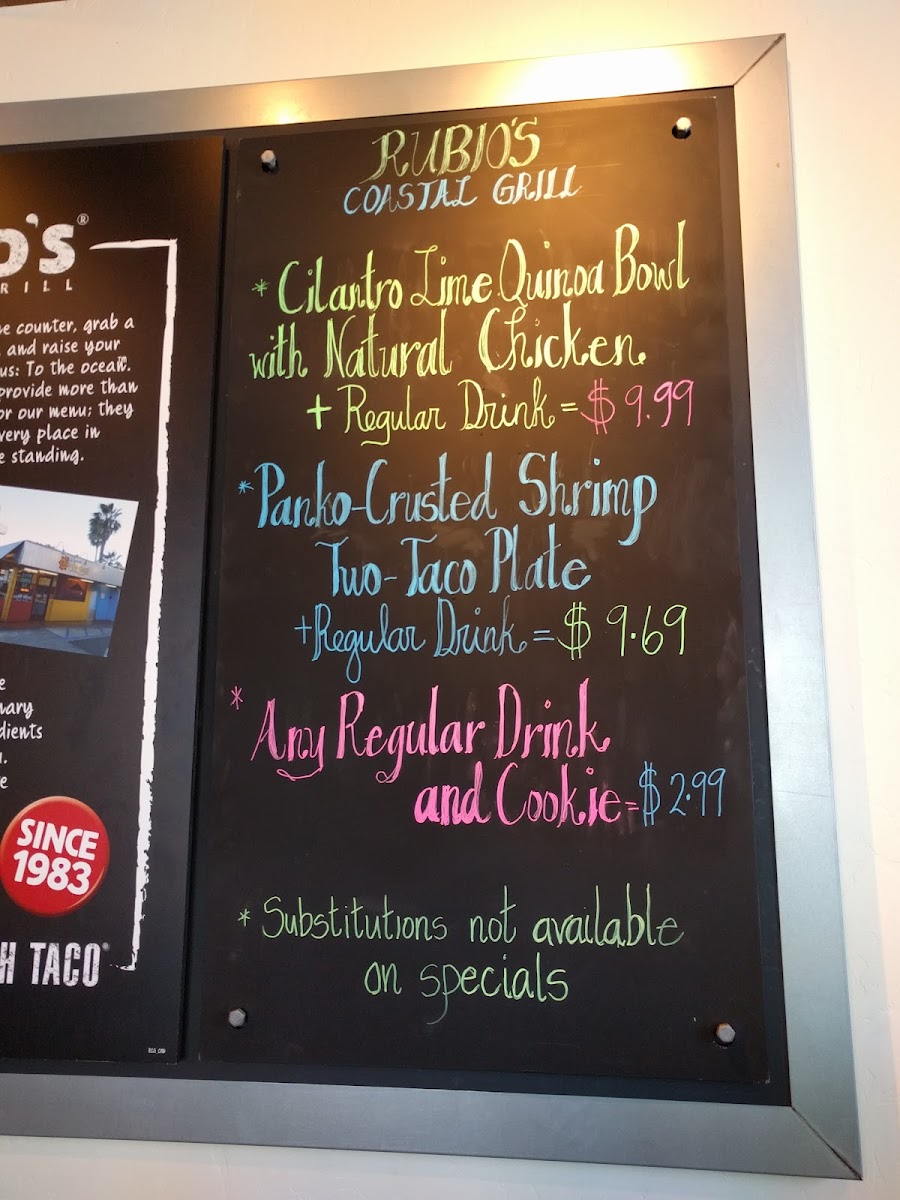 O'S®
RILL
e counter, grab a
and raise your
us: To the ocean.
provide more than
or our menu; they
very place in
e standing.
e
nary
dients
e
SINCE
1983
H TACO®
RUBIO'S
COASTAL GRILL
* Cilantro Lime Quinoa Bowl
with Natural Chicken
+ Regular Drink = $9.99
* Panko-Crusted Shrimp
Two-Taco Plate
+ Regular Drink = $9.69
* Any Regular Drink
and Cookie = $2.99
* Substitutions not available
on specials